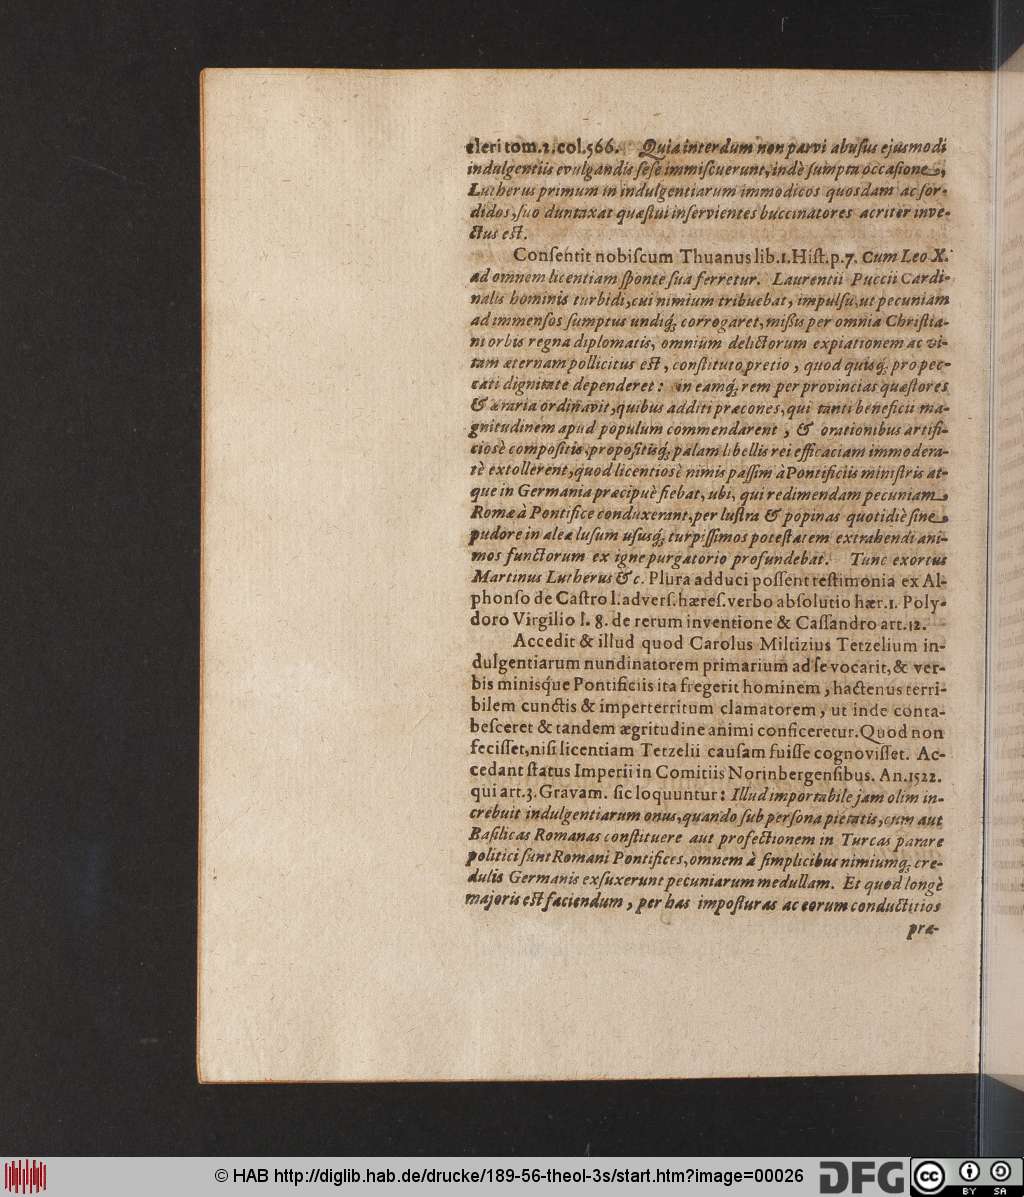 cleri tom.2.col.566. Quia interdum non parvi abuſus ejusmodi
indulgentiis evulgandis ſeſe immiſcuerunt, indè ſumpta occaſione,
Lutherus primum in indulgentiarum immodicos quosdam ac ſor-
didos, ſuo duntaxat quæſtui inſervientes buccinatores acriter inve-
ctus eſt.
Conſentit nobiſcum Thuanus lib.1.Hiſt.p.7. Cum Leo X.
ad omnem licentiam ſponte ſua ferretur. Laurentii Puccii Cardi-
nalis hominis turbidi, cui nimium tribuebat, impulſu, ut pecuniam
ad immenſos ſumptus undiq; corrogaret, miſſis per omnia Chriſtia-
ni orbis regna diplomatis, omnium delictorum expiationem ac vi-
tam æternam pollicitus eſt, conſtituto pretio, quod quisq; pro pec-
cati dignitate dependeret: in eamq; rem per provincias quæſtores
& æraria ordinavit, quibus additi præcones, qui tanti beneficii ma-
gnitudinem apud populum commendarent, & orationibus artifi-
cioſè compoſitis, propoſitisq; palam libellis rei efficaciam immodera-
tè extollerent, quod licentiosè nimis paſſim à Pontificiis miniſtris at-
que in Germania præcipuè fiebat, ubi, qui redimendam pecuniam
Romæ à Pontifice conduxerant, per luſtra & popinas quotidiè ſine
pudore in aleæ luſum uſusq; turpiſſimos poteſtatem extrahendi ani-
mos functorum ex igne purgatorio profundebat. Tunc exortus
Martinus Lutherus &c. Plura adduci poſſent teſtimonia ex Al-
phonſo de Caſtro l.adverſ.hæreſ.verbo abſolutio hær.1. Poly-
doro Virgilio l. 8. de rerum inventione & Caſſandro art.12.
Accedit & illud quod Carolus Miltizius Tetzelium in-
dulgentiarum nundinatorem primarium ad ſe vocarit, & ver-
bis minisque Pontificiis ita fregerit hominem, hactenus terri-
bilem cunctis & imperterritum clamatorem, ut inde conta-
beſceret & tandem ægritudine animi conficeretur. Quod non
feciſſet, niſi licentiam Tetzelii cauſam fuiſſe cognoviſſet. Ac-
cedant ſtatus Imperii in Comitiis Norinbergenſibus. An.1522.
qui art.3. Gravam. ſic loquuntur: Illud importabile jam olim in-
crebuit indulgentiarum onus, quando ſub perſona pietatis, cum aut
Baſilicas Romanas conſtituere aut profectionem in Turcas parare
politici ſunt Romani Pontifices, omnem à ſimplicibus nimiumq; cre-
dulis Germanis exſuxerunt pecuniarum medullam. Et quod longè
majoris eſt faciendum, per has impoſturas ac eorum conductitios
præ-
© HAB http://diglib.hab.de/drucke/189-56-theol-3s/start.htm?image=00026
DFG
cc BY SA